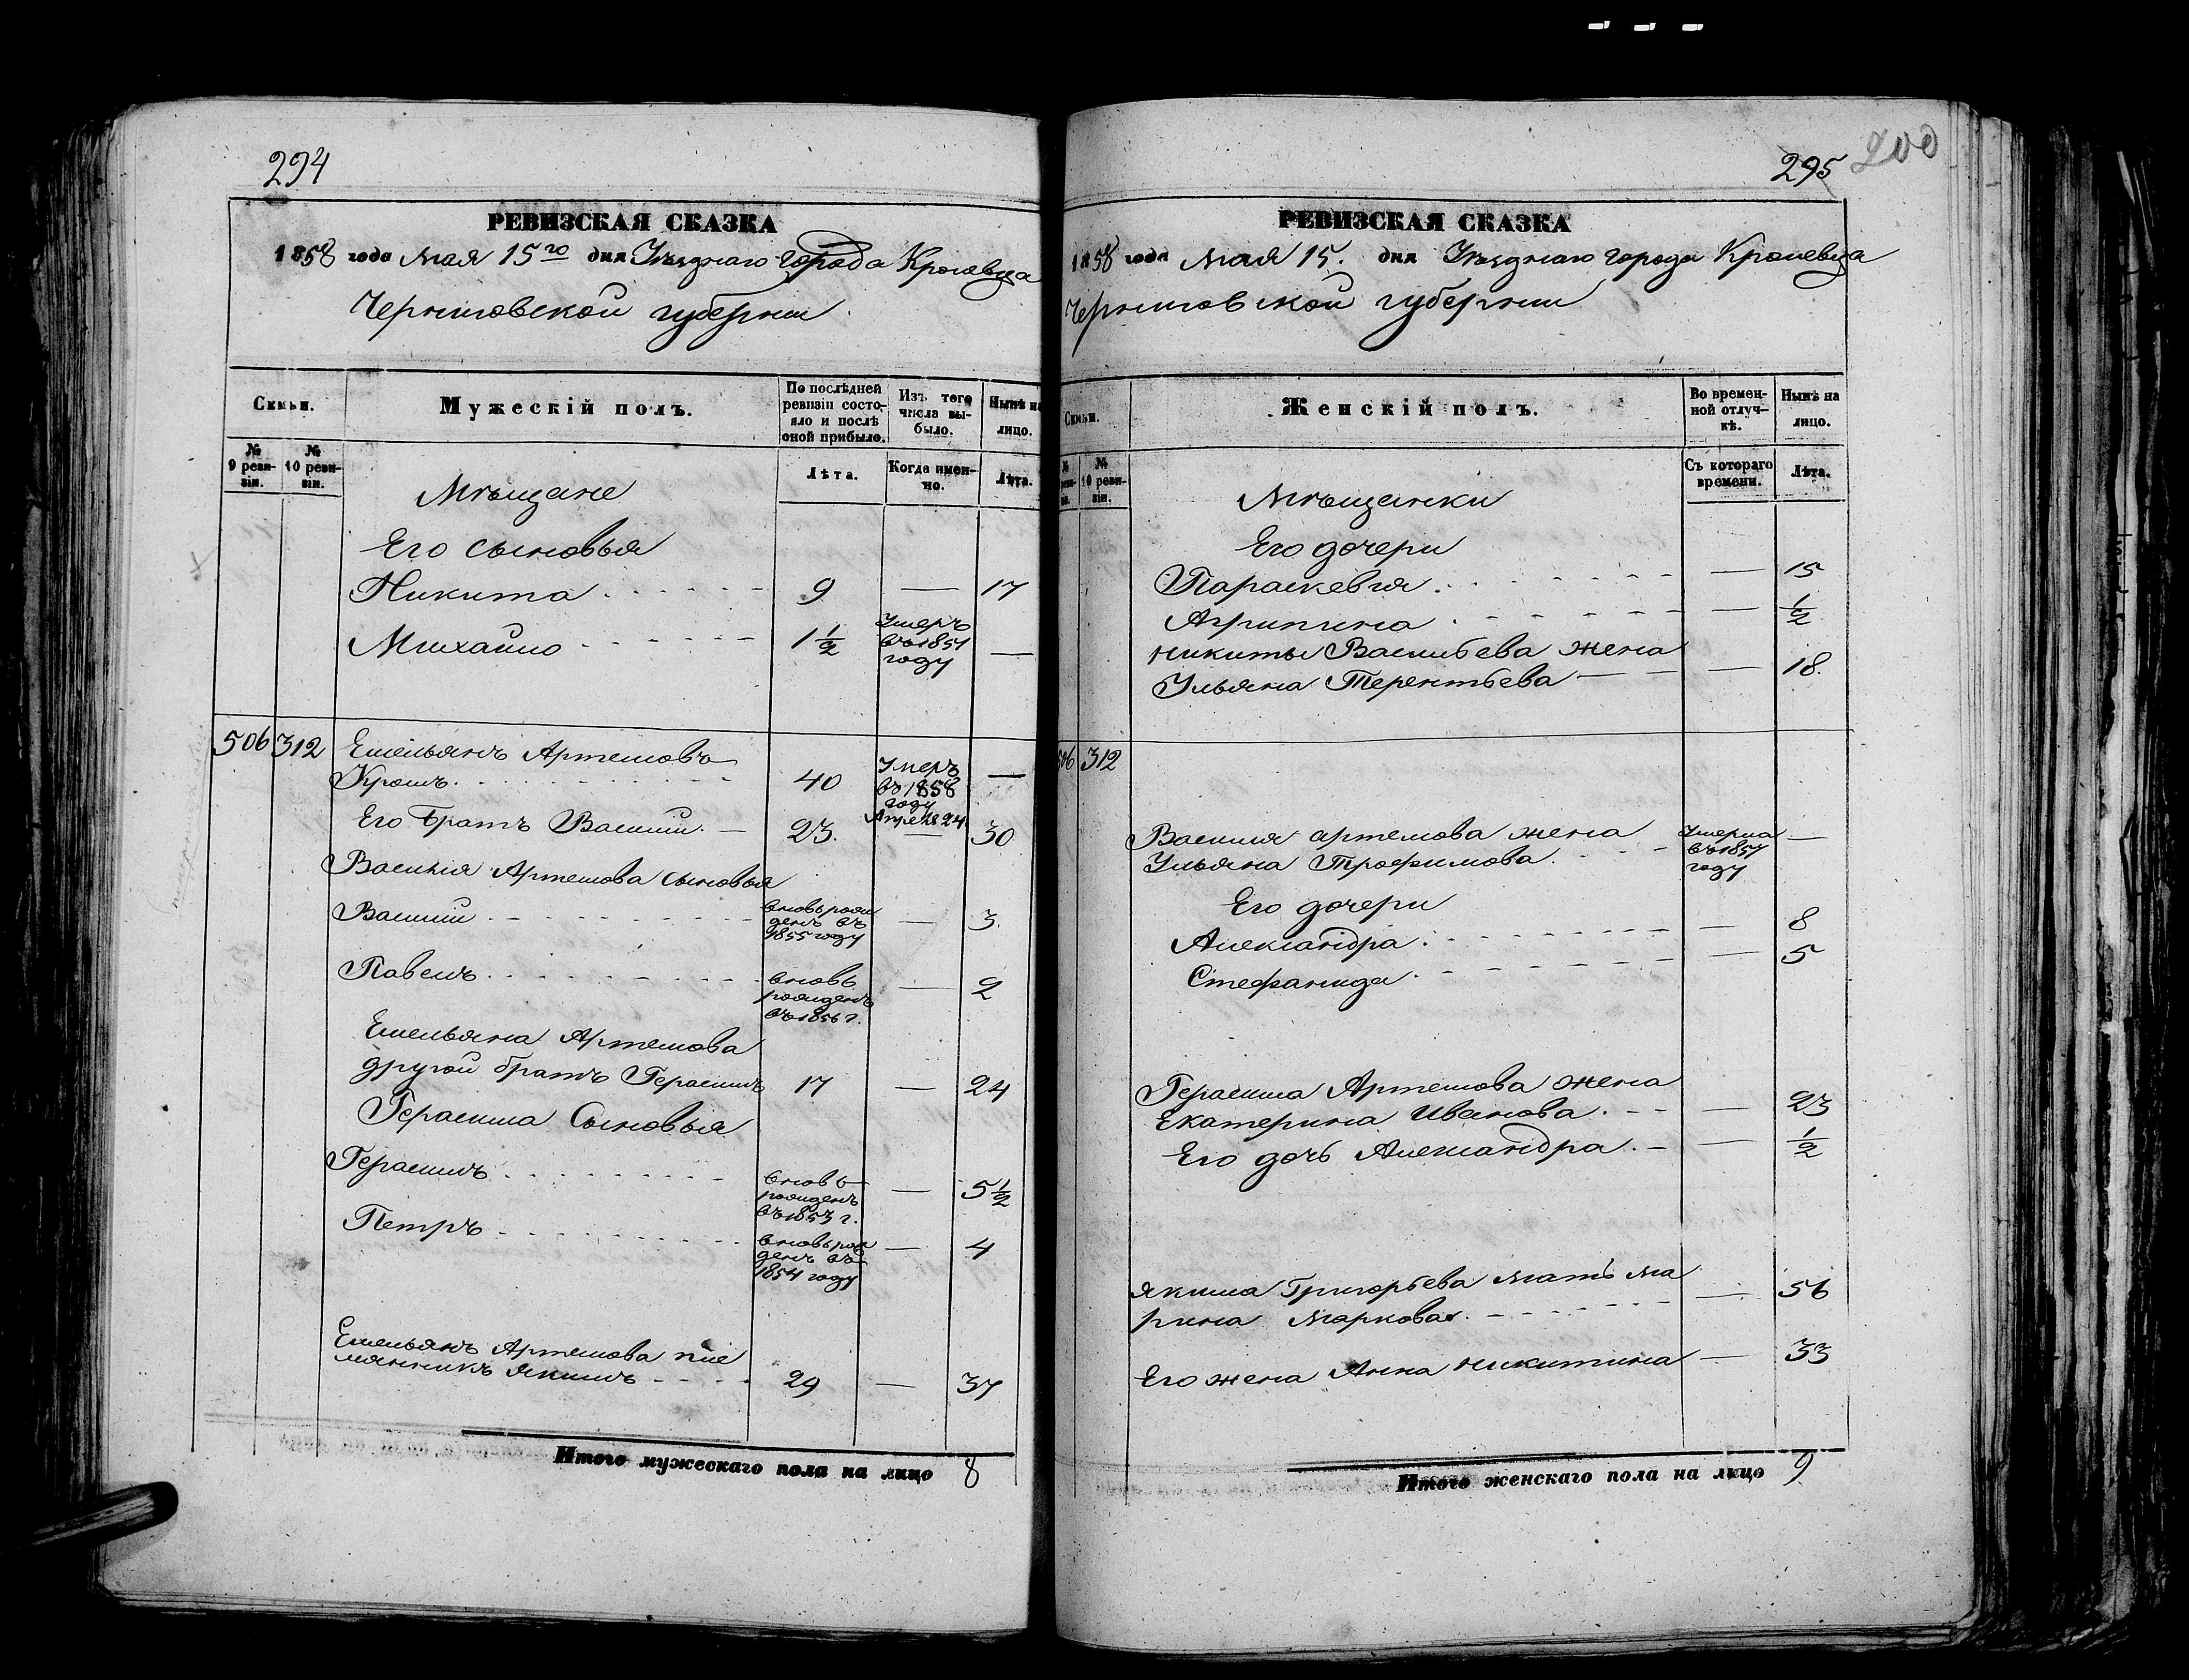 294
РЕВИЗСКАЯ СКАЗКА
1858 года мая 15го дня Уѣзднаго города Кролевца
Черниговской губерніи
Семьи.
Мужескій полъ.
По послѣдней ревизіи состояло и послѣ оной прибыло.
Изъ того числа выбыло.
Нынѣ на лицо.
№ 9 ревизіи.
№ 10 ревизіи.
Лѣта.
Когда именно.
Лѣта.
Мѣщане
Его сыновья
Никита 9 — 17
Михайло 1 1/2 Умеръ въ 1851 году —
506 312 Емельянъ Артемовъ
Кромъ 40 Умеръ въ 1858 году Апреля 24 —
Его братъ Василий — 23. — 30
Василия Артемова сыновья
Василий вновь рожденъ въ 1855 году — 3.
Павелъ вновь рожденъ въ 1856 г. — 2
Емельяна Артемова
другой братъ Герасимъ 17 — 24
Герасима Сыновья
Герасимъ вновь рожденъ въ 1853 г. — 5 1/2
Петръ вновь рожденъ въ 1854 году — 4
Емельянъ Артемова пле
мянникъ Якимъ 29 — 37
Итого мужескаго пола на лицо 8
295
200
РЕВИЗСКАЯ СКАЗКА
1858 года мая 15. дня Уѣзднаго города Кролевца
Черниговской губерніи
Семьи.
Женскій полъ.
Во временной отлучкѣ.
Нынѣ на лицо.
№ 10 ревизіи.
Съ котораго времени.
Лѣта.
Мѣщанки
Его дочери
Параскевия — 15
Агрипина — 1/2
Никиты Васильева жена
Ульяна Терентьева — 18.
506 312
Василия Артемова жена
Ульяна Трофимова Умерла въ 1857 году —
Его дочери
Александра — 8
Стефанида — 5
Герасима Артемова жена
Екатерина Иванова — 23
Его дочь Александра — 1/2
Якима Григорьева мать Ма
рина Маркова — 56
Его жена Анна Никитина — 33
Итого женскаго пола на лицо 9